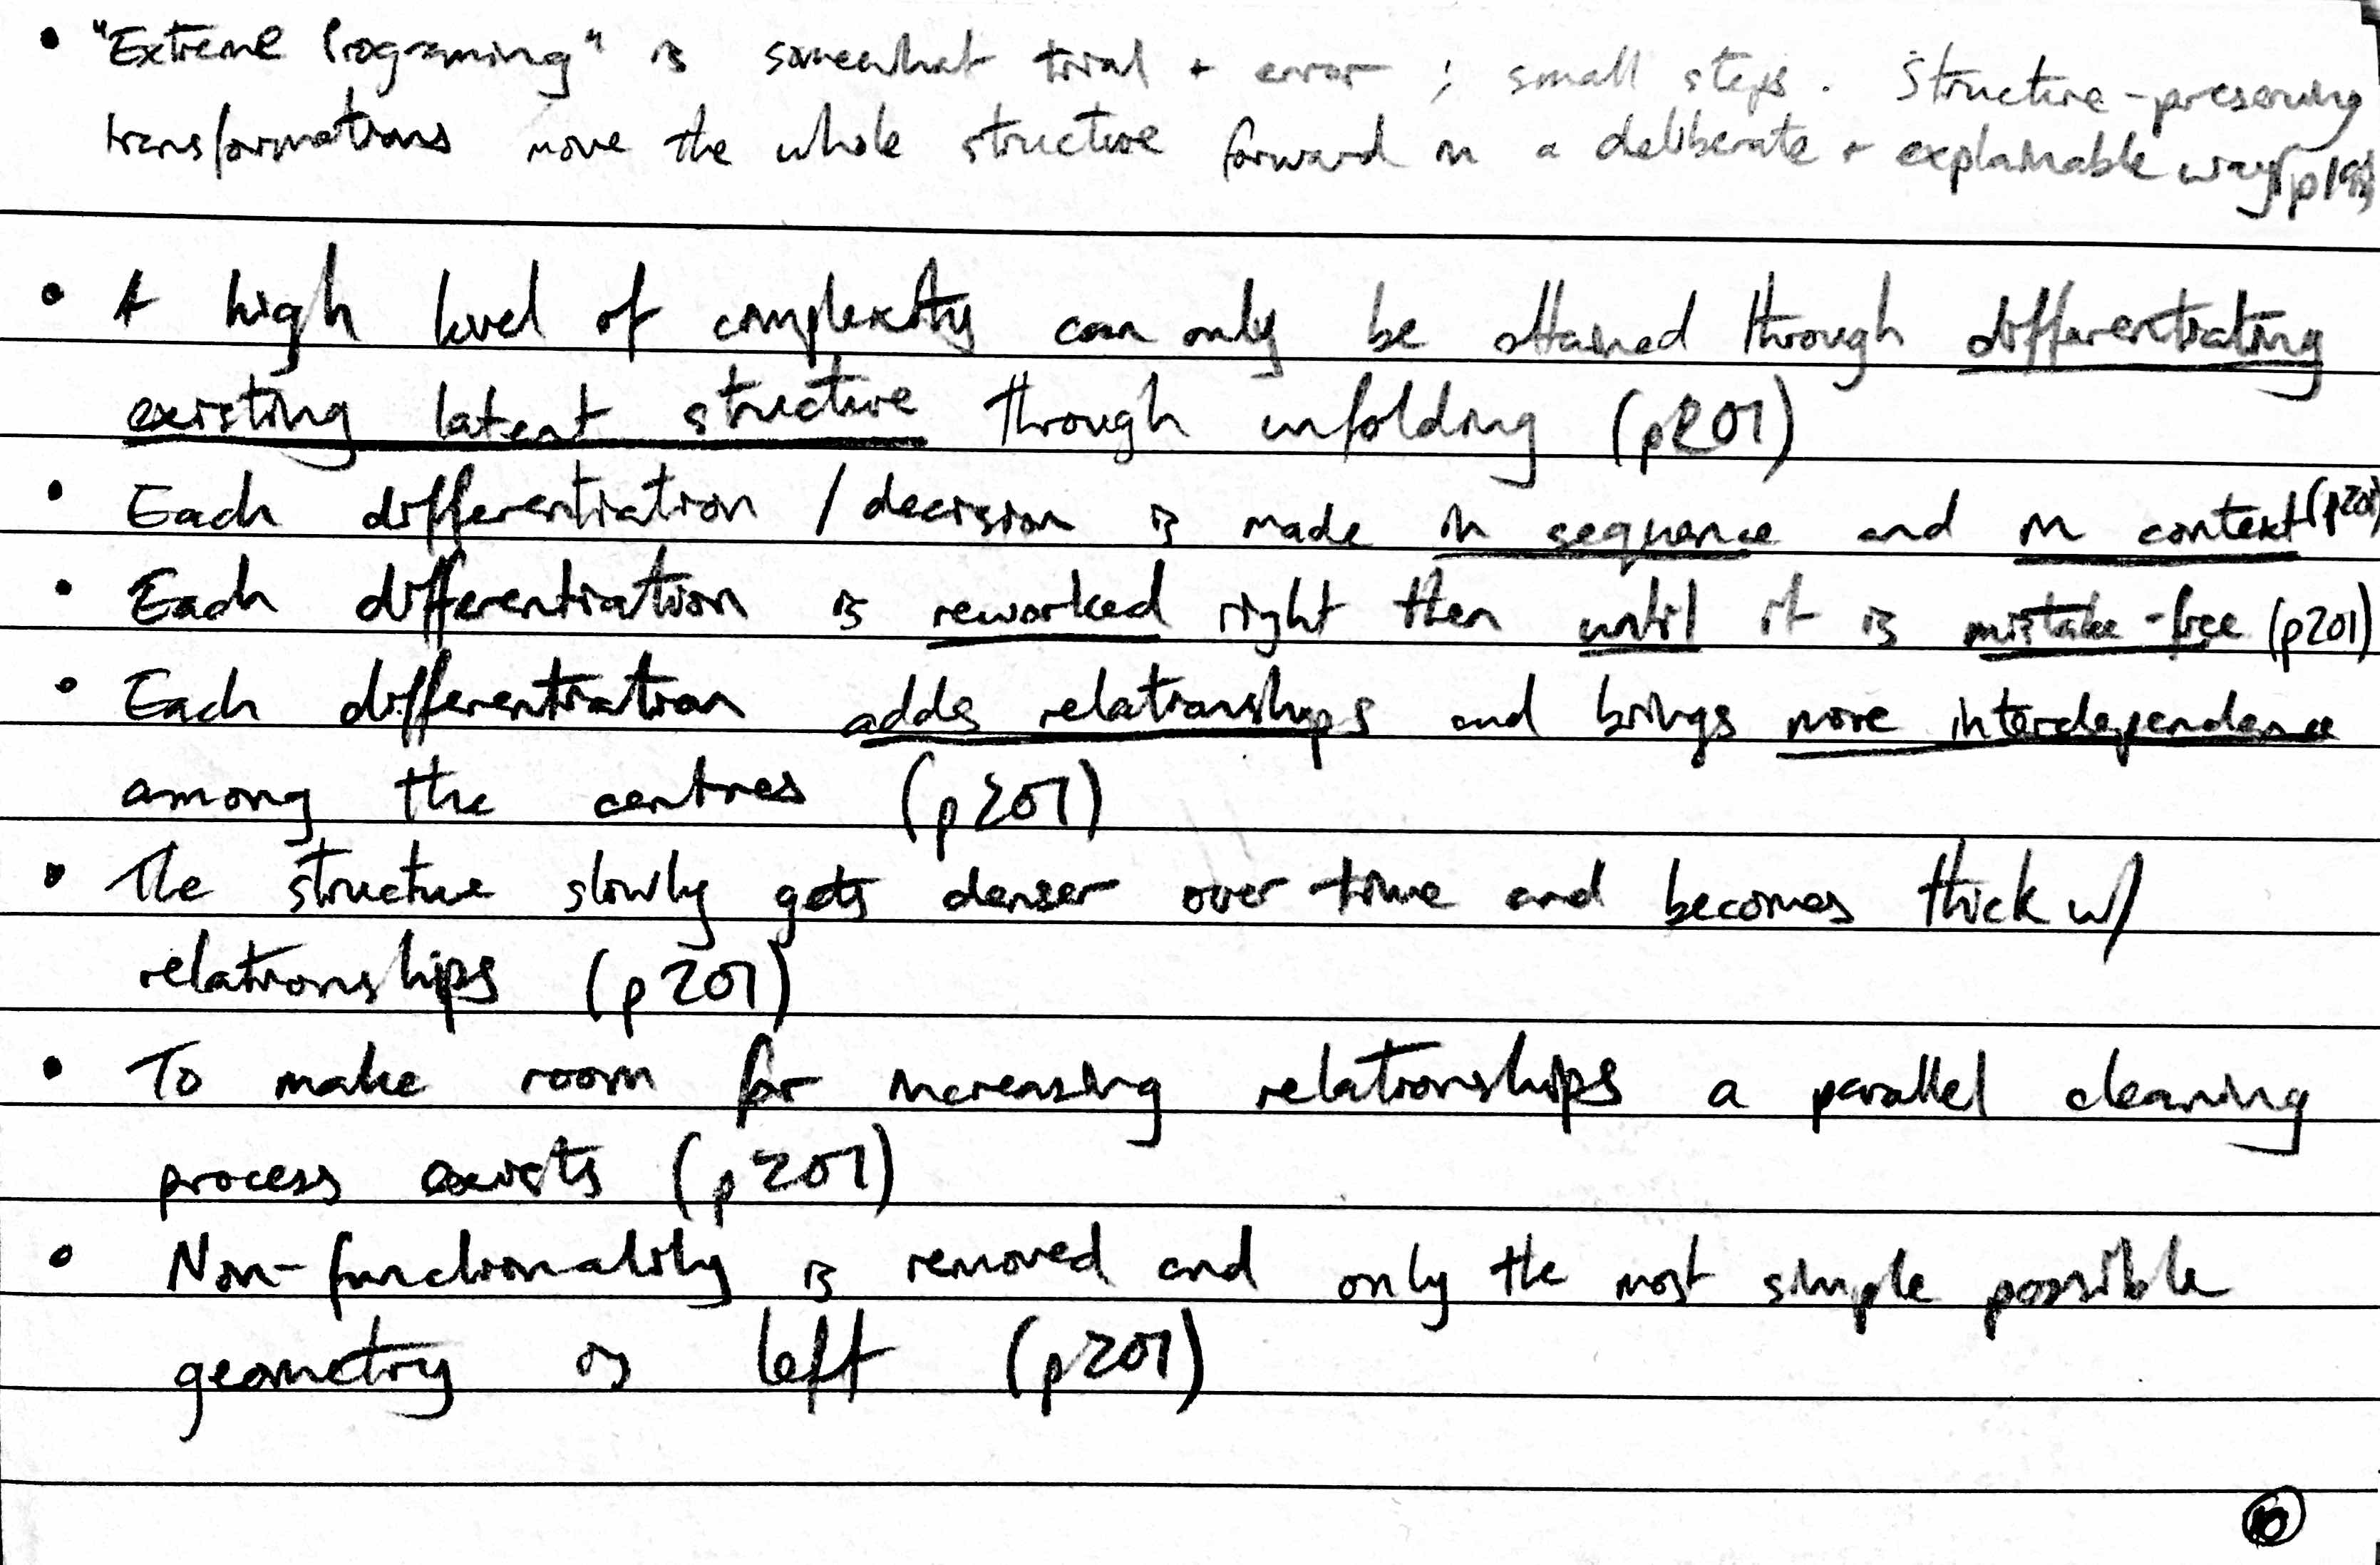 • "Extreme Programing" is somewhat trial + error ; small steps. Structure-preserving
transformations move the whole structure forward in a deliberate + explainable way
• A high level of complexity can only be attained through differentiating
existing latent structure through unfolding (p201)
• Each differentiation / decision is made in sequence and in context (p201)
• Each differentiation is reworked right then until it is mistake-free (p201)
• Each differentiation adds relationships and brings more interdependence
among the centres (p201)
• The structure slowly gets denser over time and becomes thick w/
relationships (p201)
• To make room for increasing relationships a parallel cleaning
process exists (p201)
• Non-functionality is removed and only the most simple possible
geometry is left (p201)